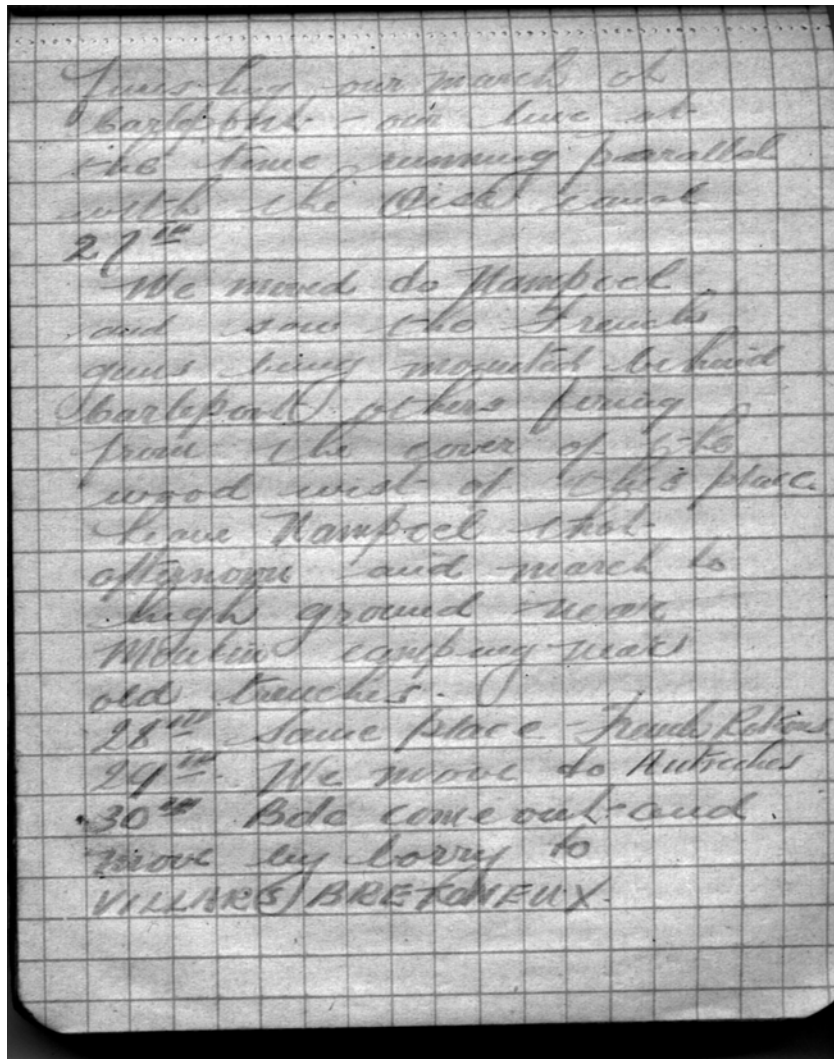 finishing our march at
Carlepont - our line at
the time running parallel
with the Oise canal
27th
We moved to Nampcel
and saw the French
guns being mounted behind
Carlepont others firing
from the cover of the
wood west of this place
leave Nampcel that
afternoon and march to
high ground near
Moulin camping near
old trenches.
28th Same place - French Rations
29th. We move to Autreches
30th Bde come out and
move by lorry to
VILLARS BRETONEUX.